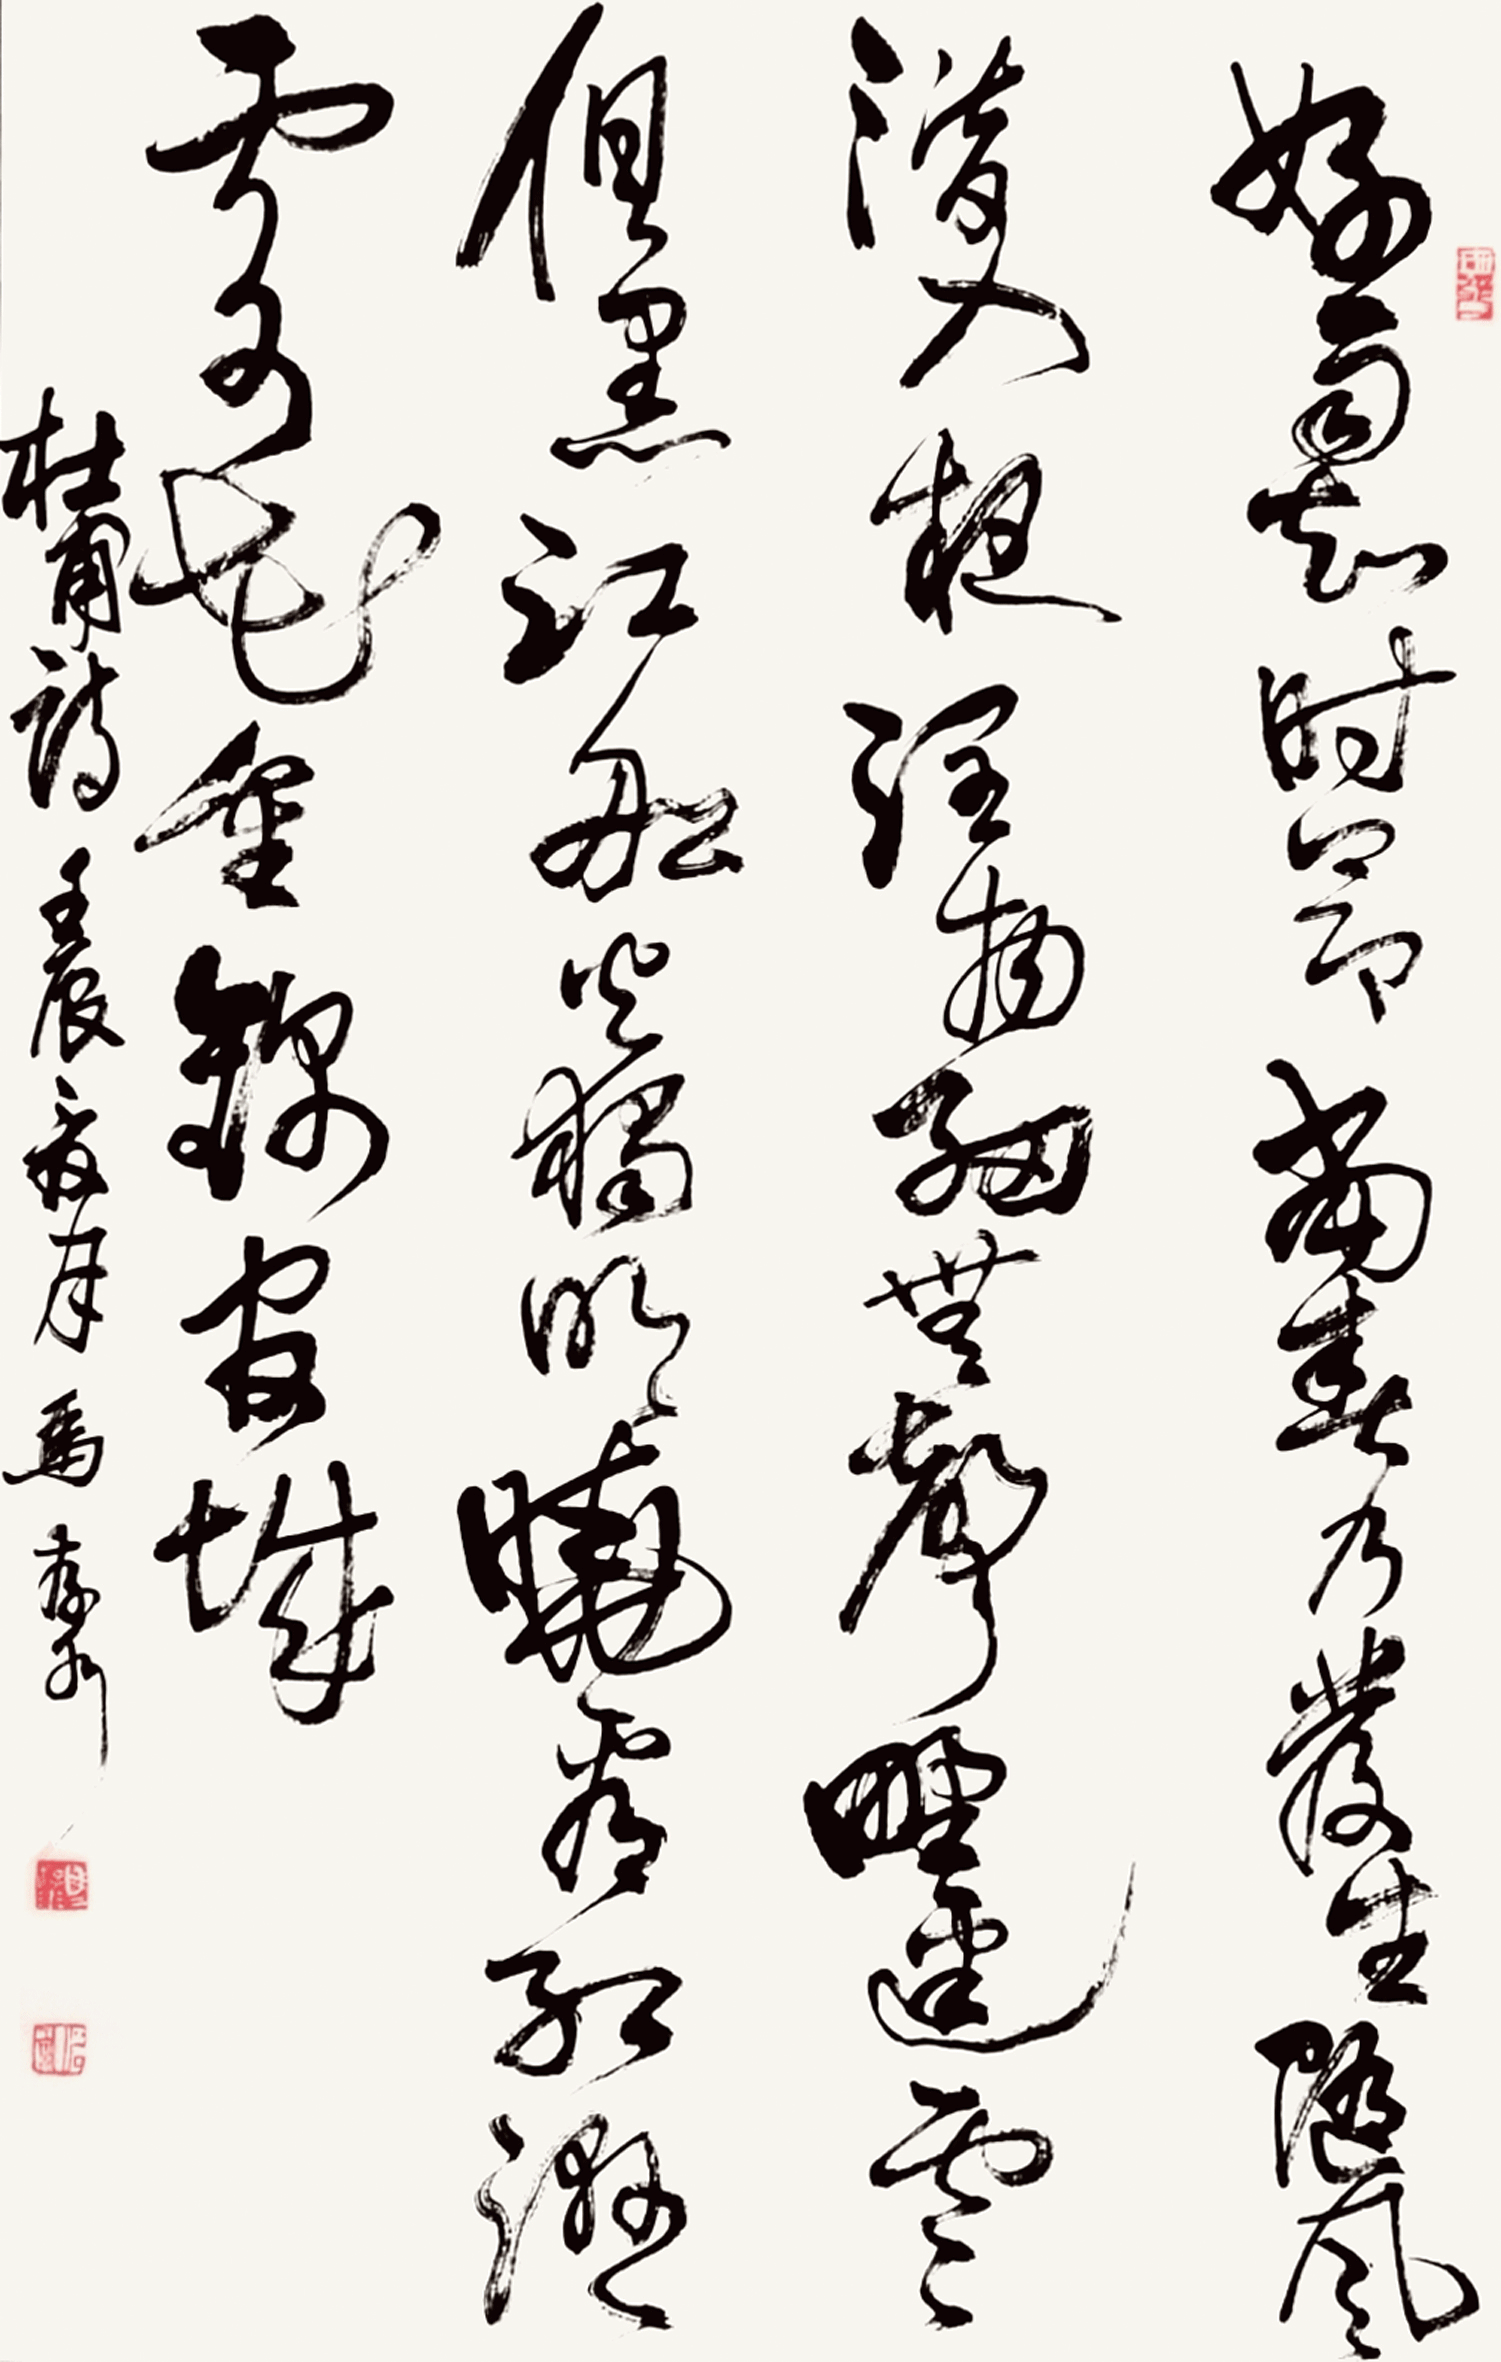 好雨知时節當春乃發生隨風
潛入夜潤物細無聲野逕雲
俱黑江船火獨明曉看紅濕
處花重錦官城
杜甫詩 壬辰夏月 馬